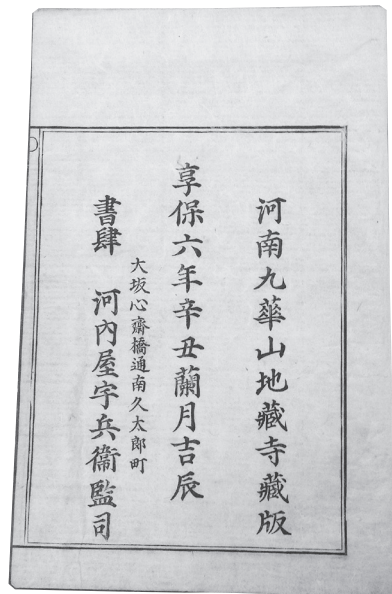 河南九華山地藏寺藏版
享保六年辛丑蘭月吉辰
大坂心齋橋通南久太郎町
書肆 河內屋宇兵衞監司